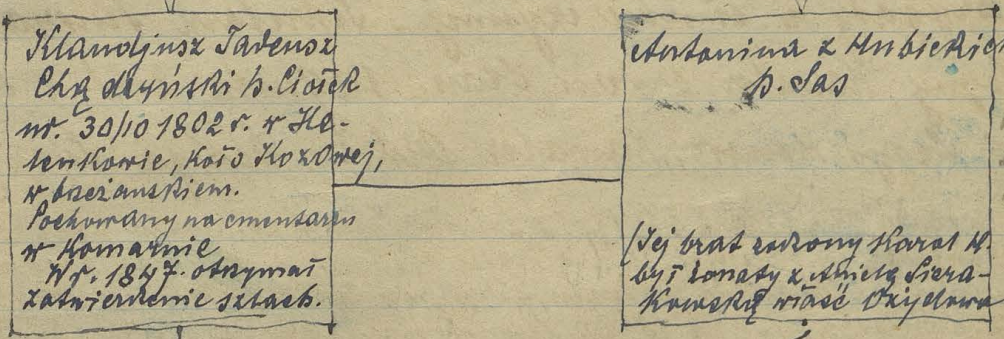 Klaudjusz Tadeusz
Chądzyński h. Ciołek
ur. 30/10 1802 r. w He-
lenkowie, koło Kozowej,
w brzeżańskiem.
Pochowany na cmentarzu
w Komarnie
W r. 1847. otrzymał
zatwierdzenie szlach.
Antonina z Hubickich
h. Sas
(Jej brat rodzony Karol H.
był żonaty z Anielą Siera-
kowską właśc. Ożydowa